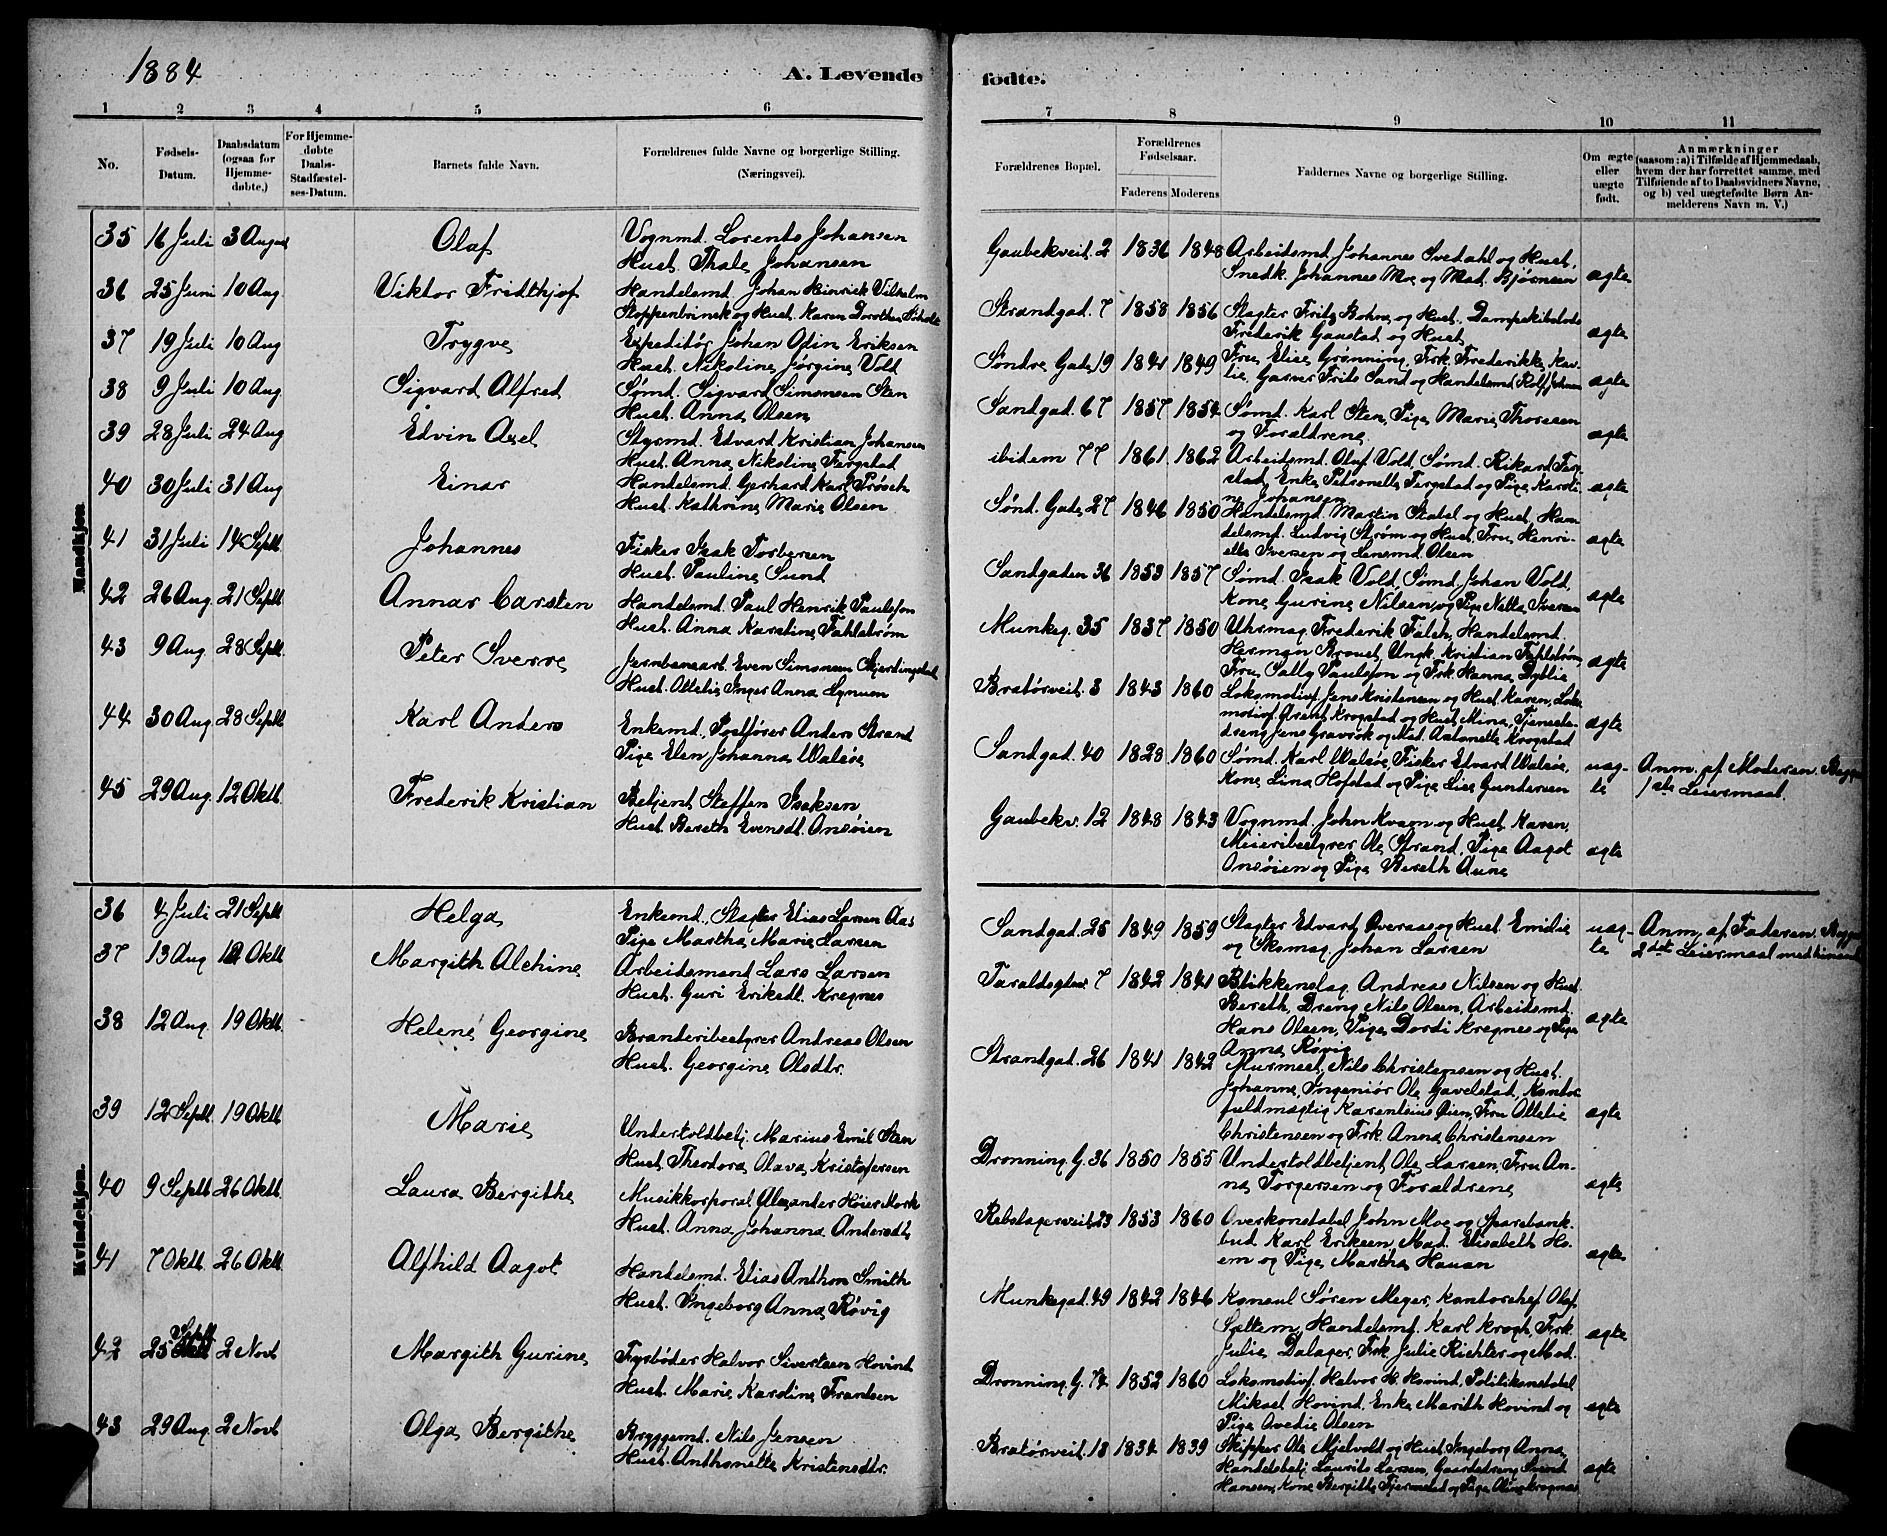 1884
A. Levende fødte.
1 2 3 4 5 6 7 8 9 10 11
No.
Fødsels-Datum.
Daabsdatum (ogsaa for Hjemme-døbte,)
For Hjemme-døbte Daabs-Stadfæstel-ses-Datum.
Barnets fulde Navn.
Forældrenes fulde Navne og borgerlige Stilling. (Næringsvei).
Forældrenes Bopæl.
Forældrenes Fødselsaar.
Faderens Moderens
Faddernes Navne og borgerlige Stilling.
Om ægte eller uægte født.
Anmærkninger (saasom: a) i Tilfælde af Hjemmedaab, hvem der har forrettet samme, med Tilføiende af to Daabsvidners Navne, og b) ved uægtefødte Børn An-melderens Navn m. V.)
Mandkjøn.
35 16 Juli 3 August Olaf
Vognmd. Lorents Johansen
Hust. Thale Johansen
Gaubekveit. 2 1836 1848
Arbeidsmd. Johannes Svedahl og Hust.
Snedk. Johannes Moe og Mad. Bjørnsen
ægte
36 25 Juni 10 Aug Viktor Fridthjof
Handelsmd. Johan Heinrich Vilhelm
Stoppenbrinck og Hust. Karen Dorothea
Strandgad. 7 1858 1856
Slagter Fritz Bohne og Hust.
Frederik Gaustad og Hust
ægte
37 19 Juli 10 Aug Trygve
Expeditør Johan Odin Eriksen
Hust. Nikoline Jørgine Vold
Søndre Gade 19 1841 1849
Fru Elise Grønning, Frk. Frederikke
Garver Frits Sand og Handelsmd Rolf
ægte
38 9 Juli 10 Aug Sigvard Alfred
Sømd. Sigvard Simonsen Sten
Hust. Anna Olsen
Sandgad. 67 1857 1854
Sømd. Karl Sten, Pige Marie Thoresen
og Forældrene.
ægte
39 28 Juli 24 Aug Edvin Axel
Styrmd. Edvard Kristian Johansen
Hust. Anna Nikoline Fergstad
ibidem 77 1861. 1862
Arbeidsmd. Oluf Vold, Sømd. Rikard Ferg-
stad, Enke Petronelle Fergstad og Pige Karoli-
ne Johansen
ægte
40 30 Juli 31 Aug Einar
Handelsmd. Gerhard Karl Prøsch
Hust. Kathrine Marie Olsen
Sønd. Gade 27 1846 1850
Handelsmd. Martin Stabel og Hust, Han-
delsmf. Ludvig Strøm og Hust, Fru Henri-
ette Iversen og Lensmd. Olsen
ægte
41 31 Juli 14 Septb Johannes
Fisker Isak Torbersen
Hust. Pauline Sund
Sandgaden 36 1853 1857
Sømd. Isak Vold, Sømd. Johan Vold,
Kone Gurine Nilsen og Pige Netta Iversen
ægte
42 26 Aug. 21 Septb Annar Carsten
Handelsmd. Paul Henrik Paulsson
Hust. Anna Karoline Fahlstrøm
Munkeg. 35 1837 1850
Uhrmag. Frederik Falch, Handelsmd.
Herman Brouet, Ungk. Kristian Fahlstrøm
Fru Sally Paulsson og Frk. Hanna Dyblie
ægte
43 9 Aug 28 Septb. Peter Sverre
Jernbanearb. Even Simonsen Skjerdingstad
Hust. Ottelie Inger Anna Lynum
Bratørveit. 3 1843 1860
Lokomotivf. Jens Kristensen og Hust Karen, Loko-
motivf. Arent Krogstad og Hust Mina, Tjeneste-
dreng Jens Gravrok og Mad. Antonette Krogstad
ægte
44 30 Aug 28 Septb. Karl Anders
Enkemd., Postfører Anders Strand
Pige Elen Johanna Walsøe
Sandgad. 40 1828 1860
Sømd. Karl Walsøe, Fisker Edvard Walsøe,
Kone Lina Hofstad og Pige Lise Gundersen
uæg-
te
Anm. af Moderen. Begges
1ste Leiermaal.
45 29 Aug. 12 Oktb. Frederik Kristian
Betjent Steffen Isaksen
Hust. Bereth Evensdt. Onsøien
Gaubekv. 12 1848 1843
Vognmd. John Kvam og Hust Karen,
Meieribestyrer Ole Strand, Pige Aagot
Onsøien og Pige Bereth Aune
ægte
Kvindekjøn.
36 4 Juli 21 Septb Helga
Enkemd., Slagter Elias Larsen Aas
Pige Martha Marie Larsen
Sandgad. 25 1849 1859
Slagter Edvard Overaas og Hust Emilie
og Skomag. Johan Larsen
uæg-
te
Anm. af Faderen. Begges
2det Leiermaal med hinanden
37 13 Aug 12 Oktb Margith Alchine
Arbeidsmand Lars Larsen
Hust. Guri Eriksdt. Kregnes
Taraldsgdsv. 7 1842 1841
Blikkenslag. Andreas Nilsen og Hust.
Bereth, Dreng Nils Olsen, Arbeidsmd.
Hans Olsen, Pige Dordi Kregnes og Pige
Anna Røvig
ægte
38 12 Aug. 19 Oktb. Helene Georgine
Brænderibestyrer Andreas Olsen
Hust. Georgine Olsdtr.
Strandgad. 26 1841 1842
Murmest. Nils Christensen og Hust.
Johanne, Ingeniør Ole Gavelstad, Kontor-
fuldmægtig Karenteius Øien, Fru Ottelie
Christensen og Frk. Anna Christensen
ægte
39 12 Septb. 19 Oktb. Marie
Undertoldbetj. Marius Emil Sten
Hust. Theodora Olava Kristofersen
Dronning. G. 36 1850 1855
Undertoldbetjent Ole Larsen, Fru An-
na Torgersen og Forældrene
ægte
40 9 Septb 26 Oktb. Laura Bergithe
Musikkorporal Alexander Høier Mork
Hust. Anna Johanna Andersdt.
Rebslagerveit. 23 1853 1860
Overkonstabel John Moe og Sparebank-
bud Karl Eriksen, Mad. Elisabeth Ho-
em og Pige Martha Hauan
ægte
41 7 Oktb. 26 Oktb. Alfhild Aagot
Handelsmd. Elias Anthon Smith
Hust. Ingeborg Anna Røvig
Munkegad. 49 1842 1846
Konsul Søren Meyer, Kontorchef Olaf
Saltem, Handelsmf. Karl Krogh, Frk.
Julie Dalager, Frk. Julie Richter og Mod.
ægte
42 25 Septb 2 Novb Margith Gurine
Fyrbøder Halvor Sivertsen Hovind
Hust. Marie Karoline Frandsen
Dronning. G. 74 1852 1860
Lokomotivf. Halvor H. Hovind, Politikonstabel
Mikael Hovind, Enke Marith Hovind og
Pige Ovedie Olsen
ægte
43 29 Aug. 2 Novb Olga Bergithe
Bryggemd. Nils Jensen
Hust. Anthonette Kristensdtr.
Bratørveit. 13 1834 1839
Skipper Ole Mjelvold og Hust Ingeborg Anna,
Handelsbetj. Laurits Larsen, Gaardsdreng
Hansen, Kone Bergitte Fjermstad og Pige Oline Kregnæs
ægte